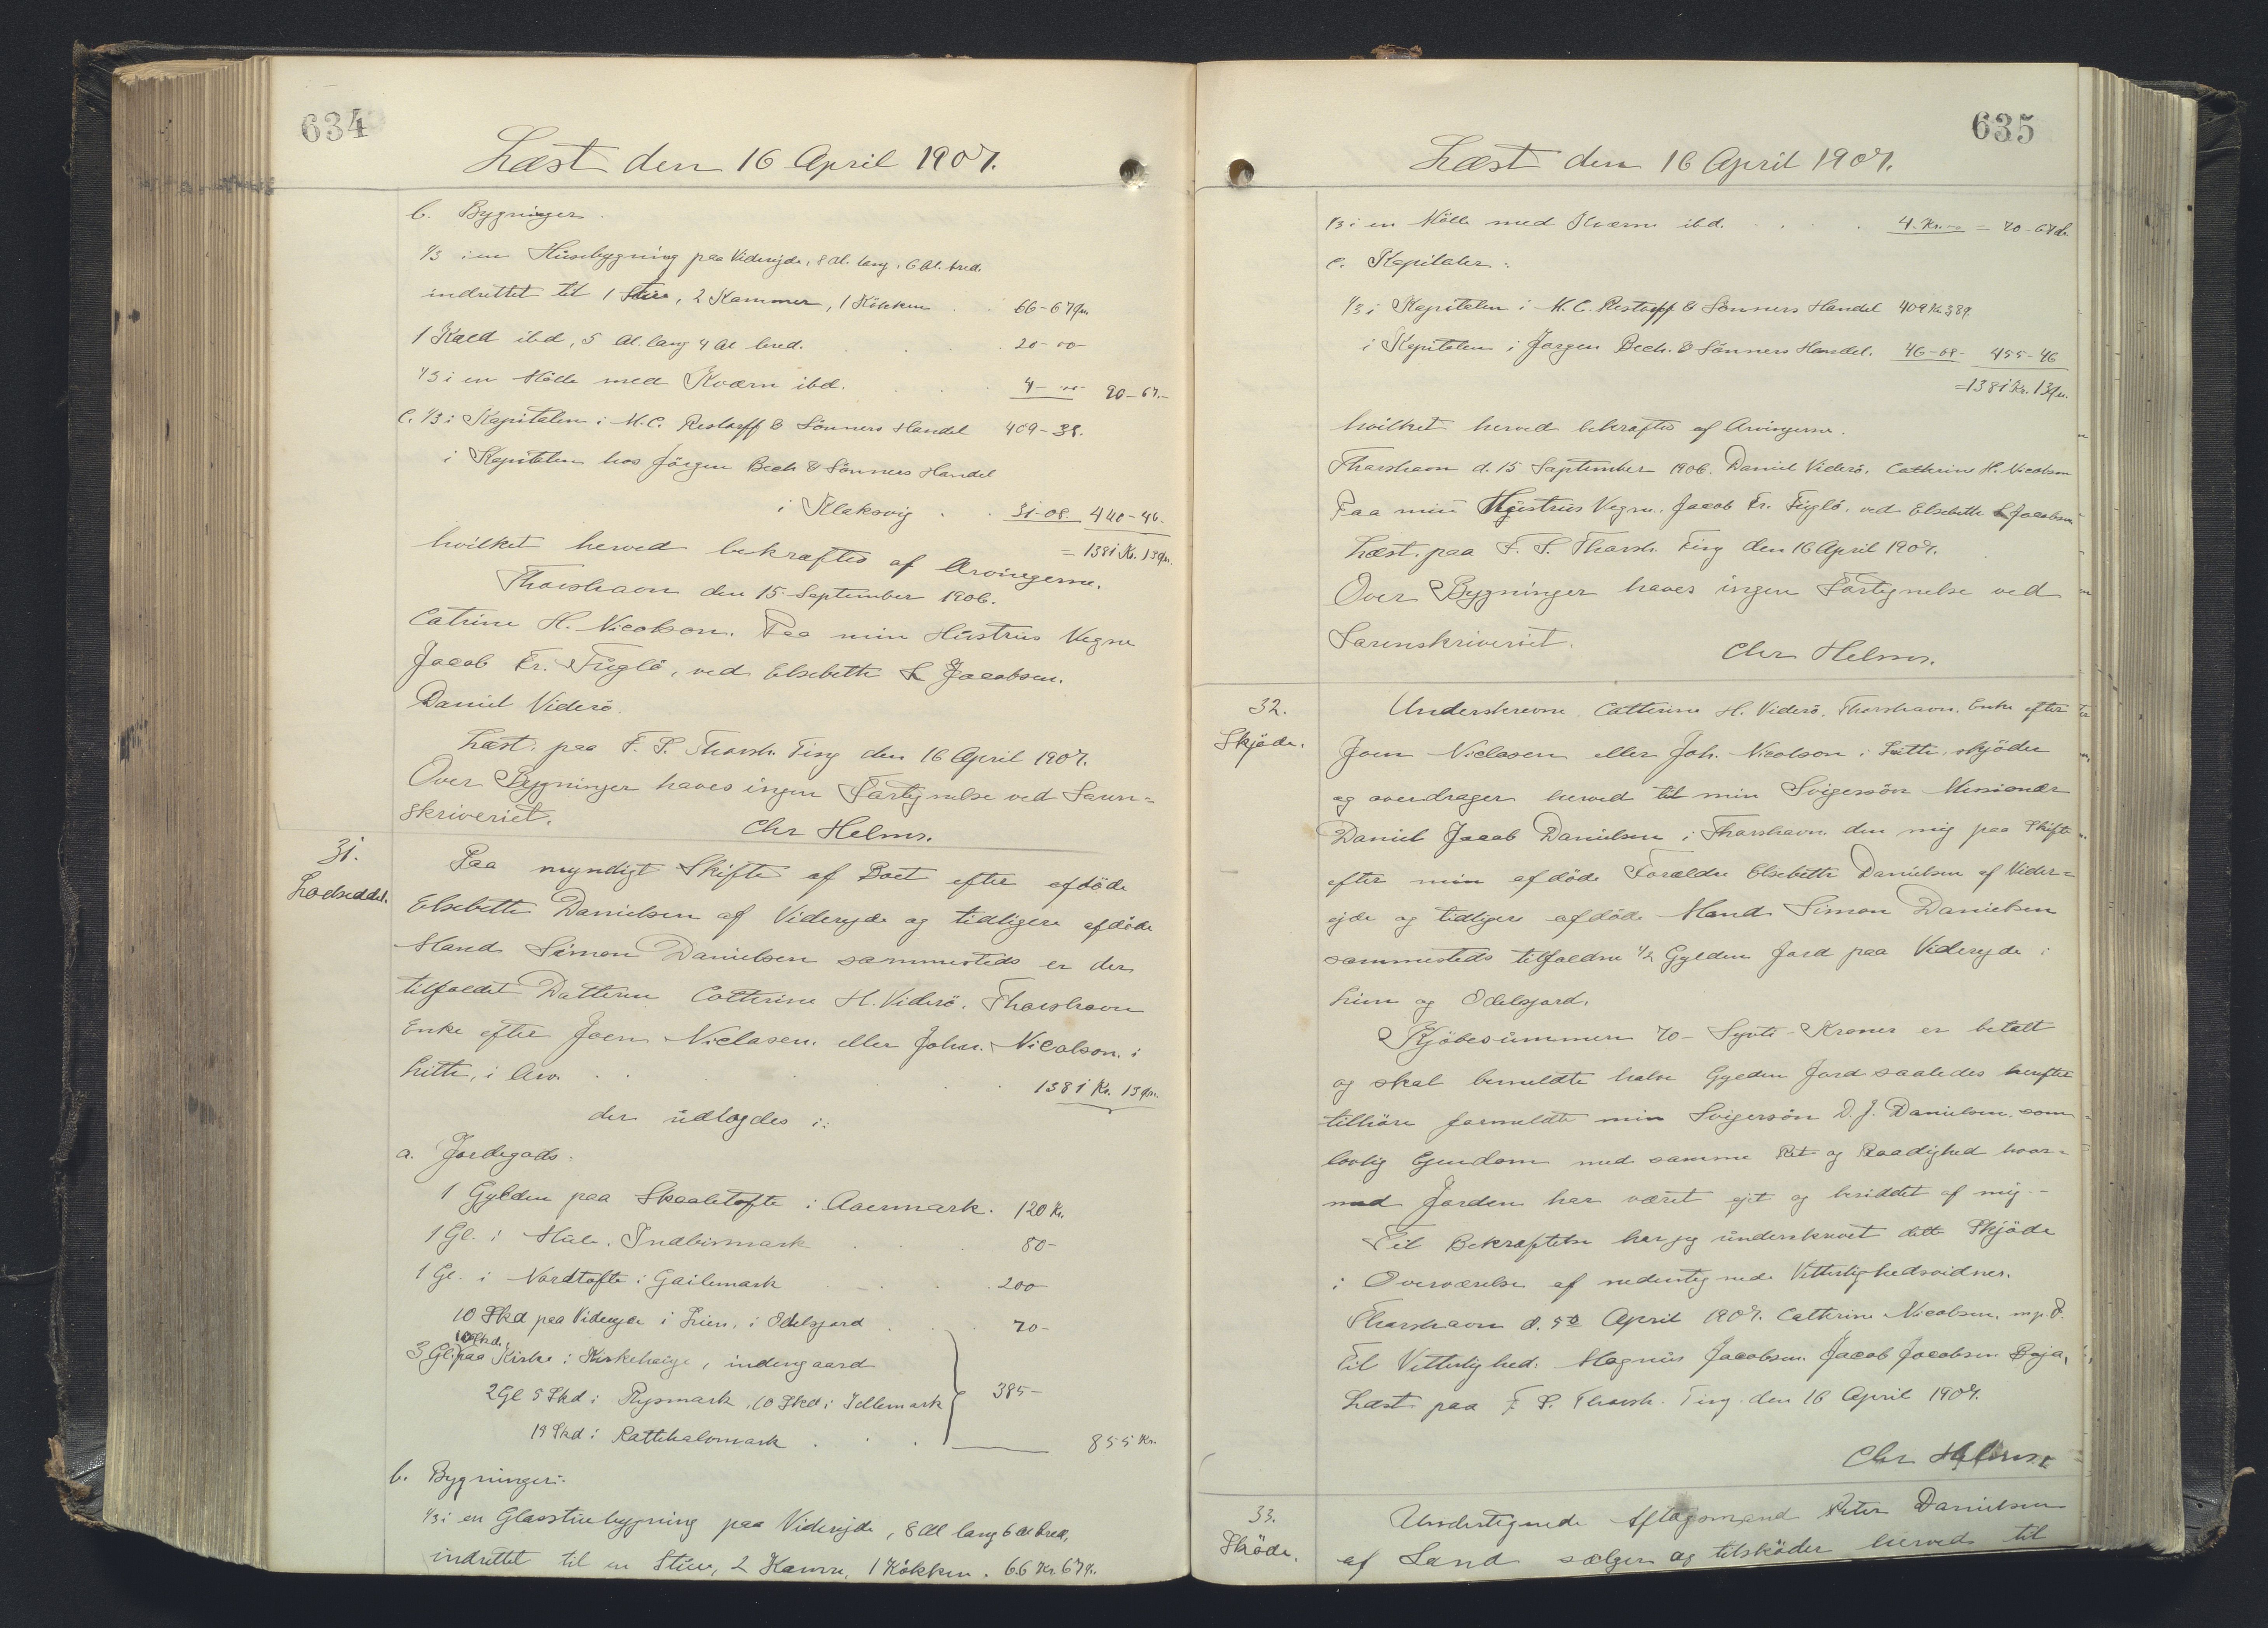 634
Læst den 16 April 1907.
b. Bygninger.
1/3 i en Húsebygning paa Viderejde, 8 Al. lang, 6 Al. bred.
indrettet til 1 Stue, 2 Kammer, 1 Kökken . . 66-67 Øre.
1 Kald ibd, 5 Al. lang 4 Al bred. . . . 20-00-
1/3 i en Mölle med Kværn ibd. . . . 4-00 90-67.-
C. 1/3 i Kapitalen i M. C. Restorff & Sönners Handel 409-38.
i Kapitalen hos Jörgen Bech & Sönners Handel
i Klaksvig . . 31-08. 440-46.
= 1381 Kr. 13 Øre.
hvilket herved bekræftes af Arvingerne.
Thorshavn den 15. September 1906.
Catrine H. Nicolson. Paa min Hústrús Vegne
Jacob Fr. Fúglö, ved Elsebette S Jacobsen.
Daniel Viderö.
Læst. paa F. S. Thorsh. Ting den 16 April 1907.
Over Bygninger haves ingen Fortegnelse ved Soren=
skriveriet.
Chr Helms.
31.
Lodseddel.
Paa myndigt Skifte af Boet efter afdöde
Elsebette Danielsen af Viderejde og tidligere afdöde
Mand Simon Danielsen sammesteds er der
tilfaldet Datteren Cathrine H. Viderö, Thorshavn
Enke efter Joen Niclasen. eller John. Nicolson. i
Leith, i Arv. . . . 1381 Kr. 13 Øre.
der údlagdes i:
a. Jordegods:
1 Gylden paa Skaaletofte i Avermark. 120 Kr.
1 Gl. i Múle. Indbirmark . . 80-
1 Gl. i Nordtofte i Gailemark . . 200
10 Skd paa Viderejde i Lien, i Odelsjord . . 70-
3 Gl. 10 Skd. paa Kirke i Kirkehaúge, indengaard
2 Gl 5 Skd i Rysmark, 10 Skd i Idlemark 385-
19 Skd i Rattihalsmark . . . 855 Kr.
b. Bygninger:
1/3 i en Glasstúebygning paa Viderejde, 8 Al lang 6 Al bred,
indrettet til en Stúe, 2 Kamre, 1 Kökken. 66 Kr 67 Ø.
635
Læst den 16 April 1907.
1/3 i en Mölle med Kværn ibd. . . . . 4. Kr. = 90-67 Ø.
c. Kapitaler:
1/3 i Kapitalen i M. C. Restorff & Sönners Handel 409 Kr. 38 Ø.
i Kapitalen i Jorgen Bech. & Sönners Handel. 46-08- 455-46
=1381 Kr. 13 Øre.
hvilket herved bekræftes af Arvingerne.
Thorshavn d. 15 September 1906. Daniel Viderö. Cathrine H. Nicolson
Paa min Hústrús Vegne. Jacob Fr. Fúglö. ved Elsebette S Jacobsen
Læst. paa F. S. Thorsh. Ting den 16 April 1907.
Over Bygninger haves ingen Fortegnelse ved
Sorenskriveriet.
Chr Helms.
32.
Skjöde.
Underskrevne Cathrine H. Viderö. Thorshavn. Enke efter
Joen Niclasen eller Joh. Nicolson i Leith, skjöder
og overdrager herved til min Svigersön Missionær
Daniel Jacob Danielsen i Thorshavn den mig paa Skifte
efter min afdöde Forældre Elsebette Danielsen af Vider=
ejde og tidligere afdöde Mand Simon Danielsen
sammesteds tilfaldne 1/2 Gylden Jord paa Viderejde i
Lien og Odelsjord.
Kjöbesúmmen 70- Syvti- Kroner er betalt
og skal bemeldte halve Gylden Jord saaledes herefter
tilhöre formeldte min Svigersön D. J. Danielsen. som
lovlig Ejendom med samme Ret og Raadighed hvor=
med Jorden har været ejet og besiddet af mig.-
Til Bekræftelse har jeg únderskrevet dette Skjöde
i Overværelse af nedentegnede Vitterlighedsvidner.
Thorshavn d. 5te April 1907. Cathrine Nicolson. m. p. P.
Til Vitterlighed. Magnús Jacobsen. Jacob Jacobsen Boja.
Læst paa F. S. Thorsh. Ting. den 16 April 1907.
Chr Helms.
33.
Sköde.
Undertegnede Aftagsmand Peter Danielsen
af Sand sælger og tilsköder herved til